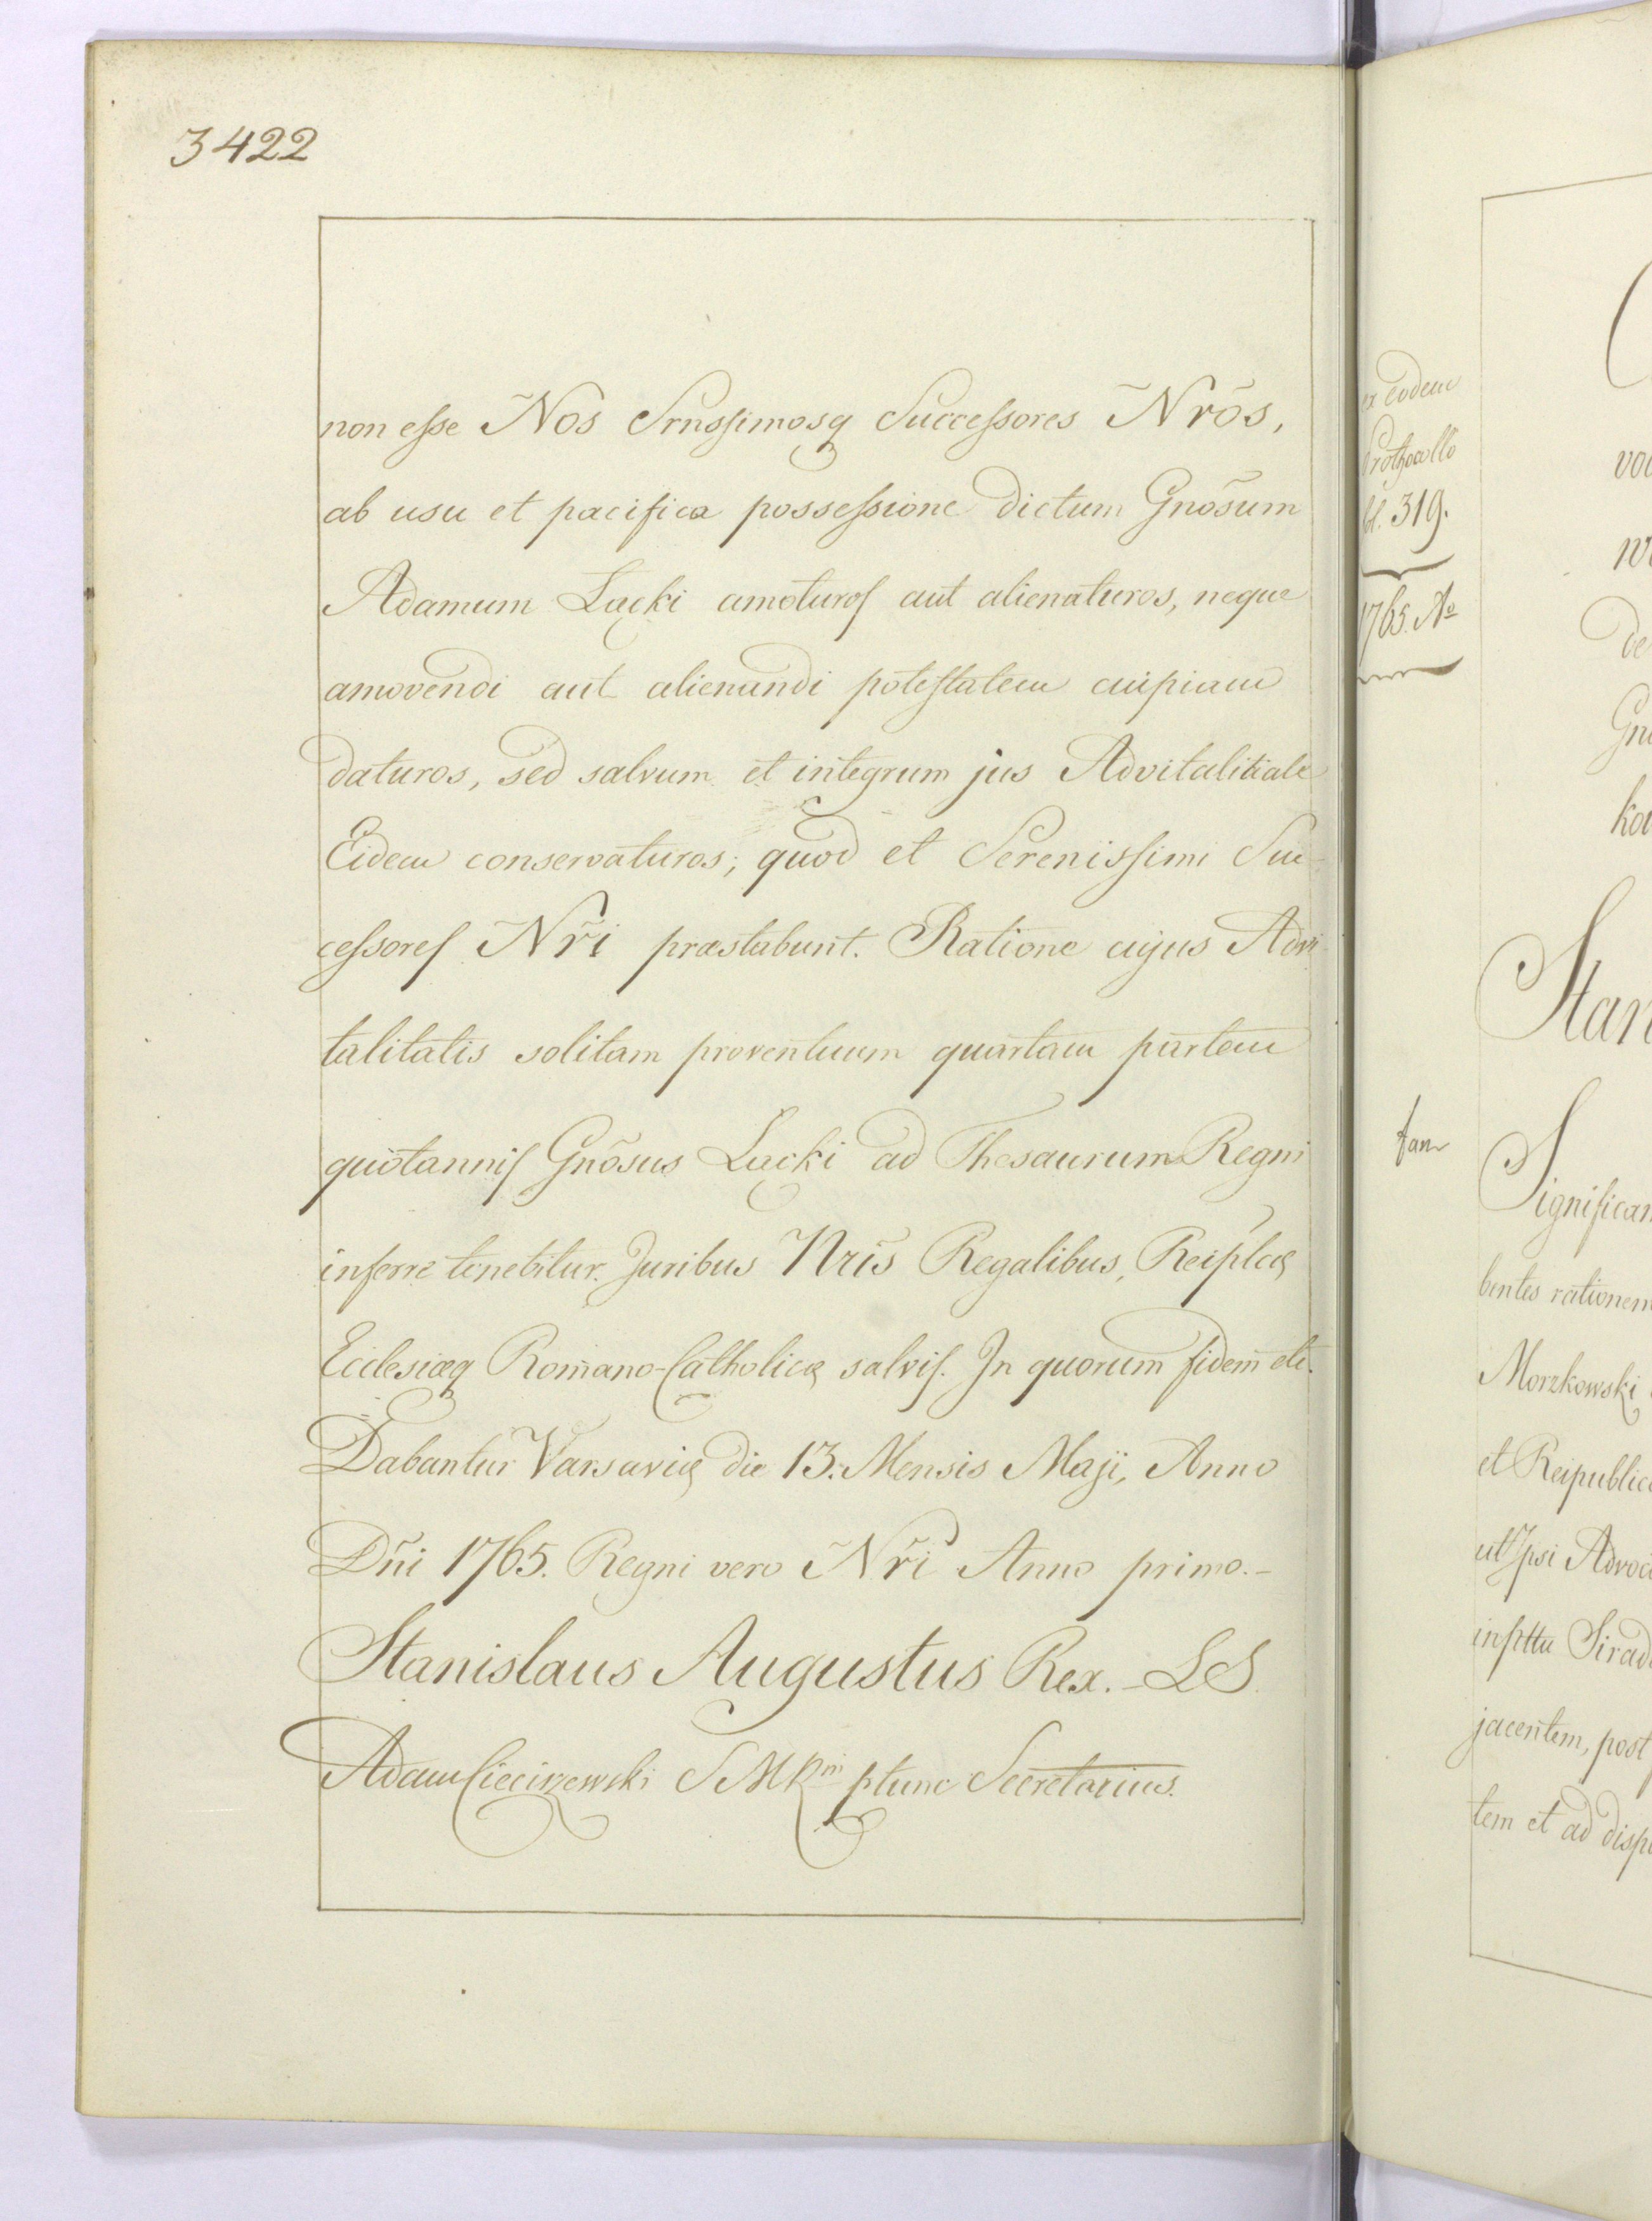 3422
non esse Nos Srnssimosq Successores Nrõs,
ab usu et pacifica possessione dictum Gnõsum
Adamum Łącki amoturos aut alienaturos, neque
amovendi aut alienandi potestatem cuipiam
daturos, sed salvum et integrum jus Advitalitiale
Eidem conservaturos; quod et Serenissimi Suc-
cessores Nr̃i præstabunt. Ratione cujus Advi
talitatis solitam proventuum quartam partem
quotannis Gnõsus Łącki ad Thesaurum Regni
inferre tenebitur. Juribus Nris Regalibus, Reiplcę
Ecclesiæq Romano-Catholicę salvis. In quorum fidem etc.
Dabantur Varsavię die 13. Mensis Maji, Anno
Dñi 1765. Regni vero Nr̃i Anno primo.-
Stanislaus Augustus Rex. - LS.
Adam Cieciszewski SMRm ptunc Secretarius.
ex eodem
Prothocollo
fol. 319.
1765. Ao
voc
de
Gn
kow
Stan
fam
Significam
bentes rationem
Morzkowski
et Reipublic
ut Ipsi Advoc
inpttu Sirad
jacentem, post
tem et ad disp